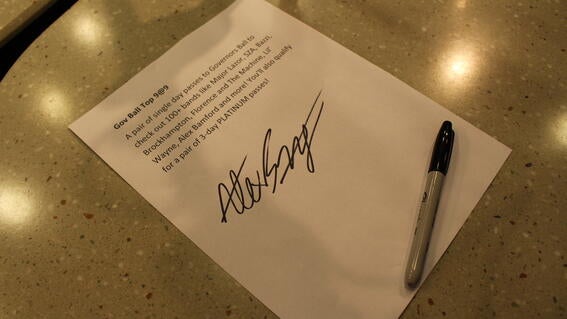 Gov Ball Top 9@9
A pair of single day passes to Governors Ball to
check out 100+ bands like Major Lazor, SZA, Bazzi,
Brockhampton, Florence and The Machine, Lil'
Wayne, Alex Bamford and more! You'll also qualify
for a pair of 3-day PLATINUM passes!